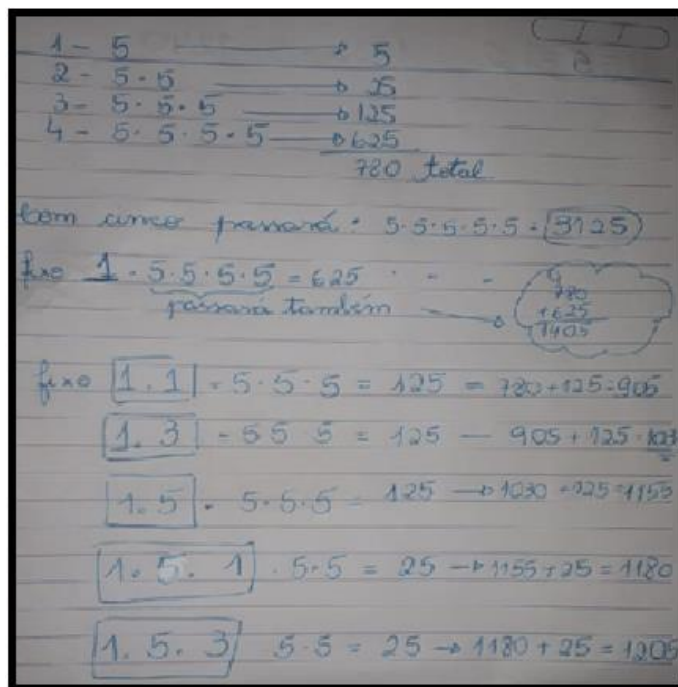 1 - 5 → 5
2 - 5 · 5 → 25
3 - 5 · 5 · 5 → 125
4 - 5 · 5 · 5 · 5 → 625
780 total
Com cinco passará: 5·5·5·5·5 = 3125
fixo 1 · 5·5·5·5 = 625
passará também →
780
+625
1405
fixo 1.1 - 5·5·5 = 125 = 780+125=905
1.3 - 5 5 5 = 125 — 905+125 ·
1.5 - 5·5·5 = 125 → 1030 +125=1155
1.5.1 · 5·5 = 25 → 1155+25=1180
1.5.3 5·5 = 25 → 1180+25=1205